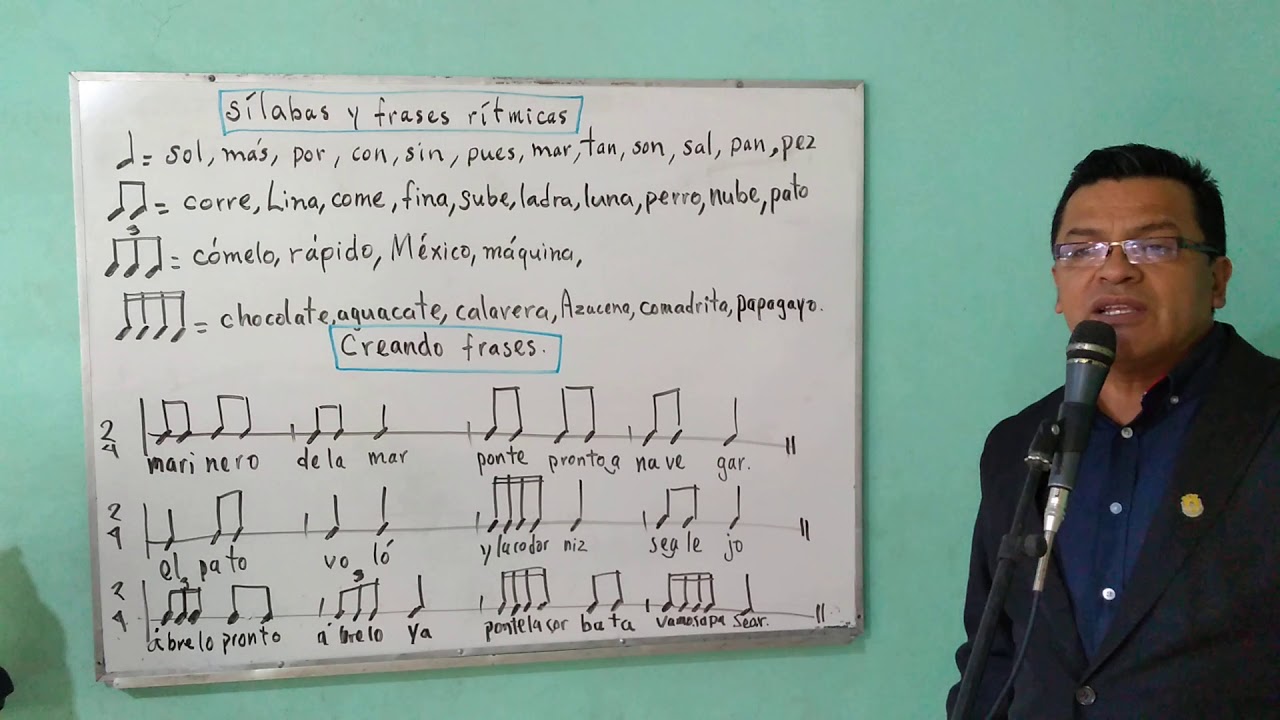 sílabas y frases rítmicas
= sol, más, por, con, sin, pues, mar, tan, son, sal, pan, pez
= corre, Lina, come, fina, sube, ladra, luna, perro, nube, pato
3
= cómelo, rápido, México, máquina,
= chocolate, aguacate, calavera, Azucena, comadrita, papagayo.
Creando frases.
2
4
mari nero de la mar ponte pronto a na ve gar.
2
4
el pato vo ló y la codor niz se a le jo
3 3
2
4
ábrelo pronto ábrelo ya ponte la cor bata vamos a pa sear.